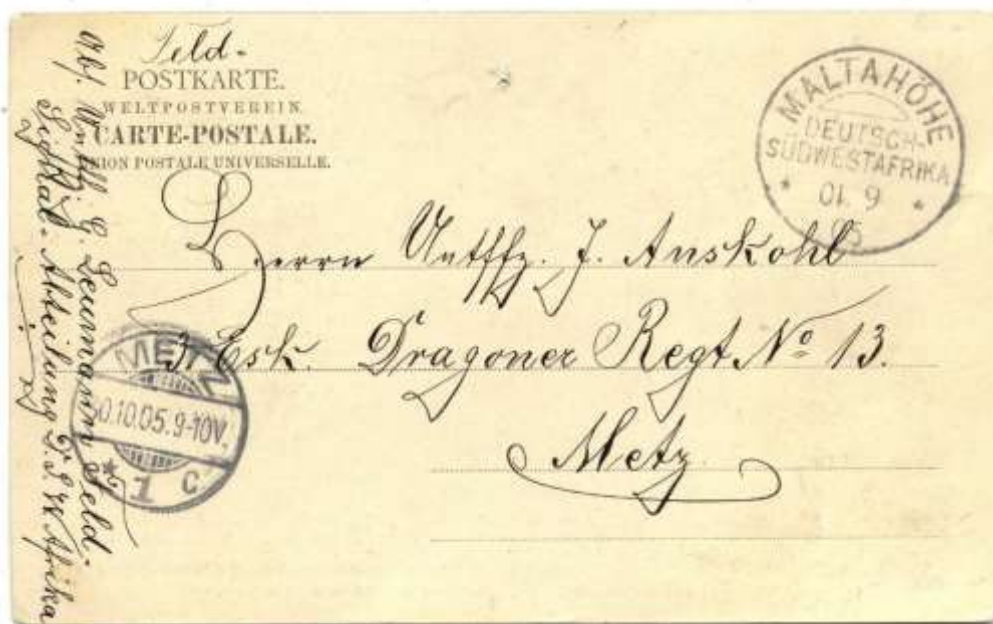 Feld-
POSTKARTE.
WELTPOSTVEREIN.
CARTE-POSTALE.
UNION POSTALE UNIVERSELLE.
MALTAHÖHE
DEUTSCH-
SÜDWESTAFRIKA
01. 9
05
Herrn Untffz. J. Anskohl
Esk. Dragoner Regt. No 13.
Metz.
METZ
0.10.05.9-10V.
* 1 c
Abs. Untffz. G. Leumann Feld-
Signal-Abteilung D. S. W. Afrika